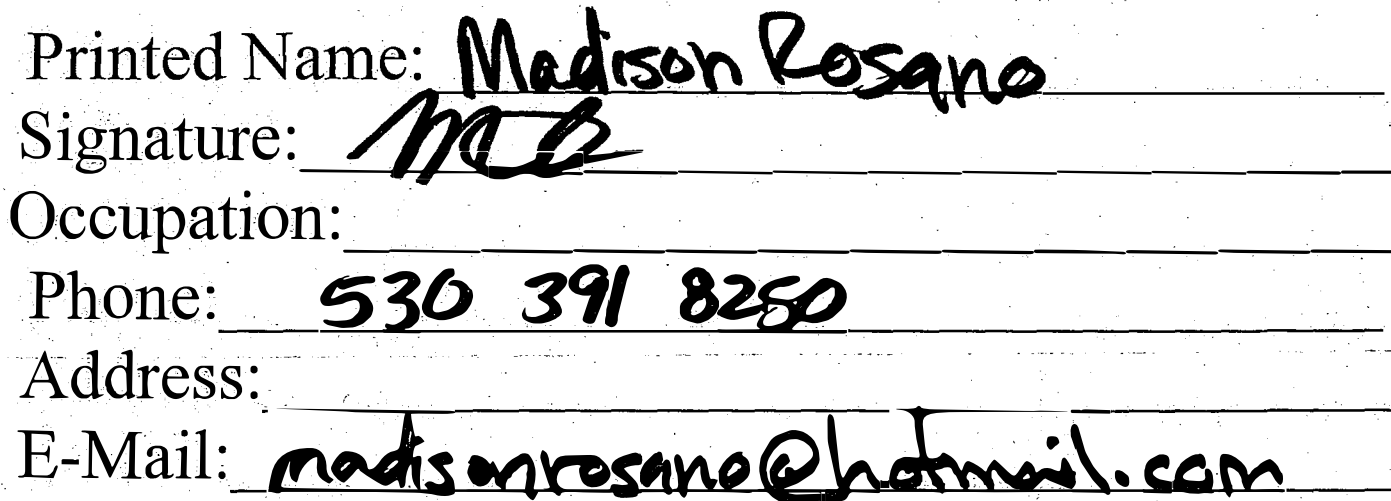 Printed Name: Madison Rosano
Signature:
Occupation:
Phone: 530 391 8250
Address:
E-Mail: madisonrosano@hotmail.com